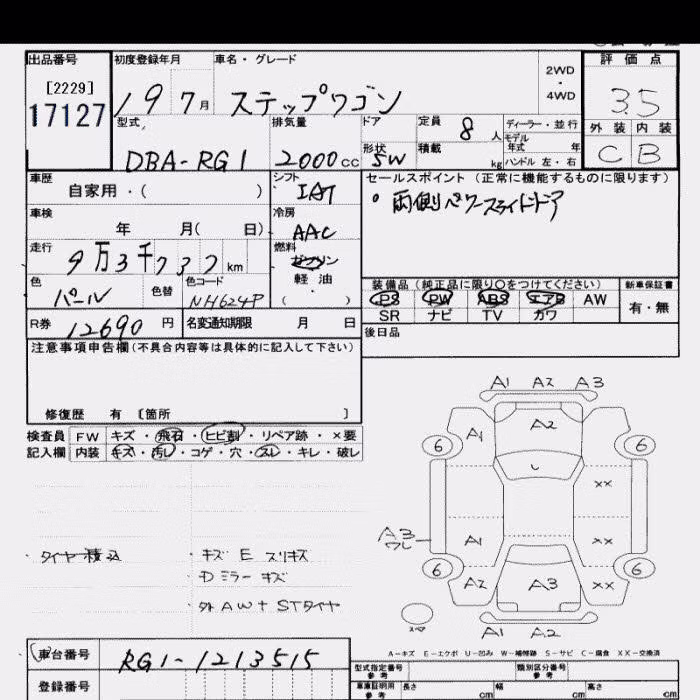 出品番号 初度登録年月 車名・グレード 2WD・4WD 評価点
[2229]
17127
19 7月 ステップワゴン 3.5
型式 排気量 ドア 定員 8人 ディーラー・並行 外装 内装
モデル年式 年
DBA-RG1 2000cc 形状 5W 積載 kg ハンドル 左・右 C B
車歴 シフト セールスポイント (正常に機能するものに限ります)
自家用・( ) IAT 。両側パワースライドドア
車検 冷房
年 月( 日) AAC
走行 燃料
9万3千737km ガソリン
軽油
( )
色 色替 色コード 装備品 (純正品に限り○をつけてください) 新車保証書
パール NH624P PS PW ABS エアB AW 有・無
SR ナビ TV カワ
R券 12690円 名変通知期限 月 日
後日品
注意事項申告欄(不具合内容等は具体的に記入して下さい)
修復歴 有 [箇所 ]
検査員 FW キズ・飛石・ヒビ割・リペア跡・×要
記入欄 内装 キズ・汚レ・コゲ・穴・スレ・キレ・破レ
A1 A2 A3
A2
A1
6 6
××
A3
ワレ
A1 ××
6 6
A2 A3 ××
A1 A2
・タイヤ積込
・キズ E スリキズ
・Dミラーキズ
・外AW+STタイヤ
A-キズ E-エクボ U-凹み W-補修跡 S-サビ C-腐食 XX-交換済
車台番号 RG1-1213515
登録番号
型式指定番号 参考 類別区分番号
車庫証明用 参考 長さ cm 幅 cm 高さ cm